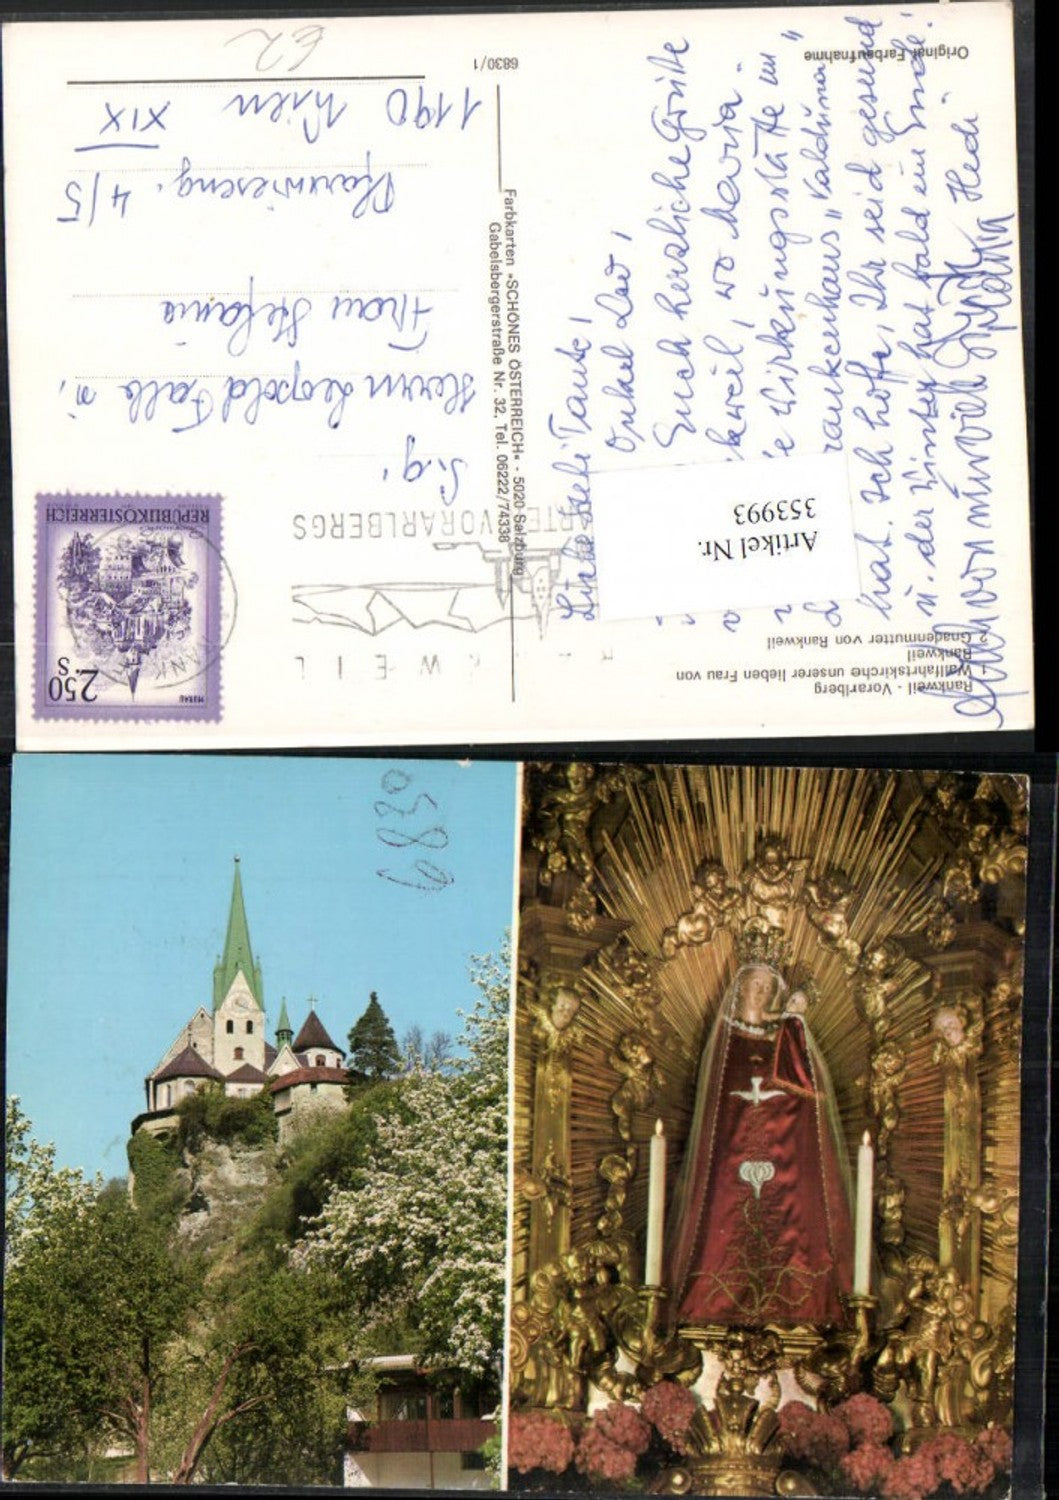 Rankweil - Vorarlberg
1 Wallfahrtskirche unserer lieben Frau von
Rankweil
2 Gnadenmutter von Rankweil
Original Farbaufnahme
Liebe Tante,
Onkel
Euch herzliche Grüße
kweil, wo Maria
e Wirkungsstätte im
rankenhaus "Valduna"
hat. Ich hoffe, Ihr seid gesund
u. der Winter hat bald ein Ende!
Auch von mir viele
Hedi
Artikel Nr.
353993
Farbkarten »SCHÖNES ÖSTERREICH« - 5020 Salzburg
Gabelsbergerstraße Nr. 32, Tel. 06222/74338
6830/1
WEIL
RTE VORARLBERGS
2.50
S
MURAU
REPUBLIK ÖSTERREICH
Herrn Leopold
Frau Stefanie
4/5
1190 Wien
XIX
62
6830